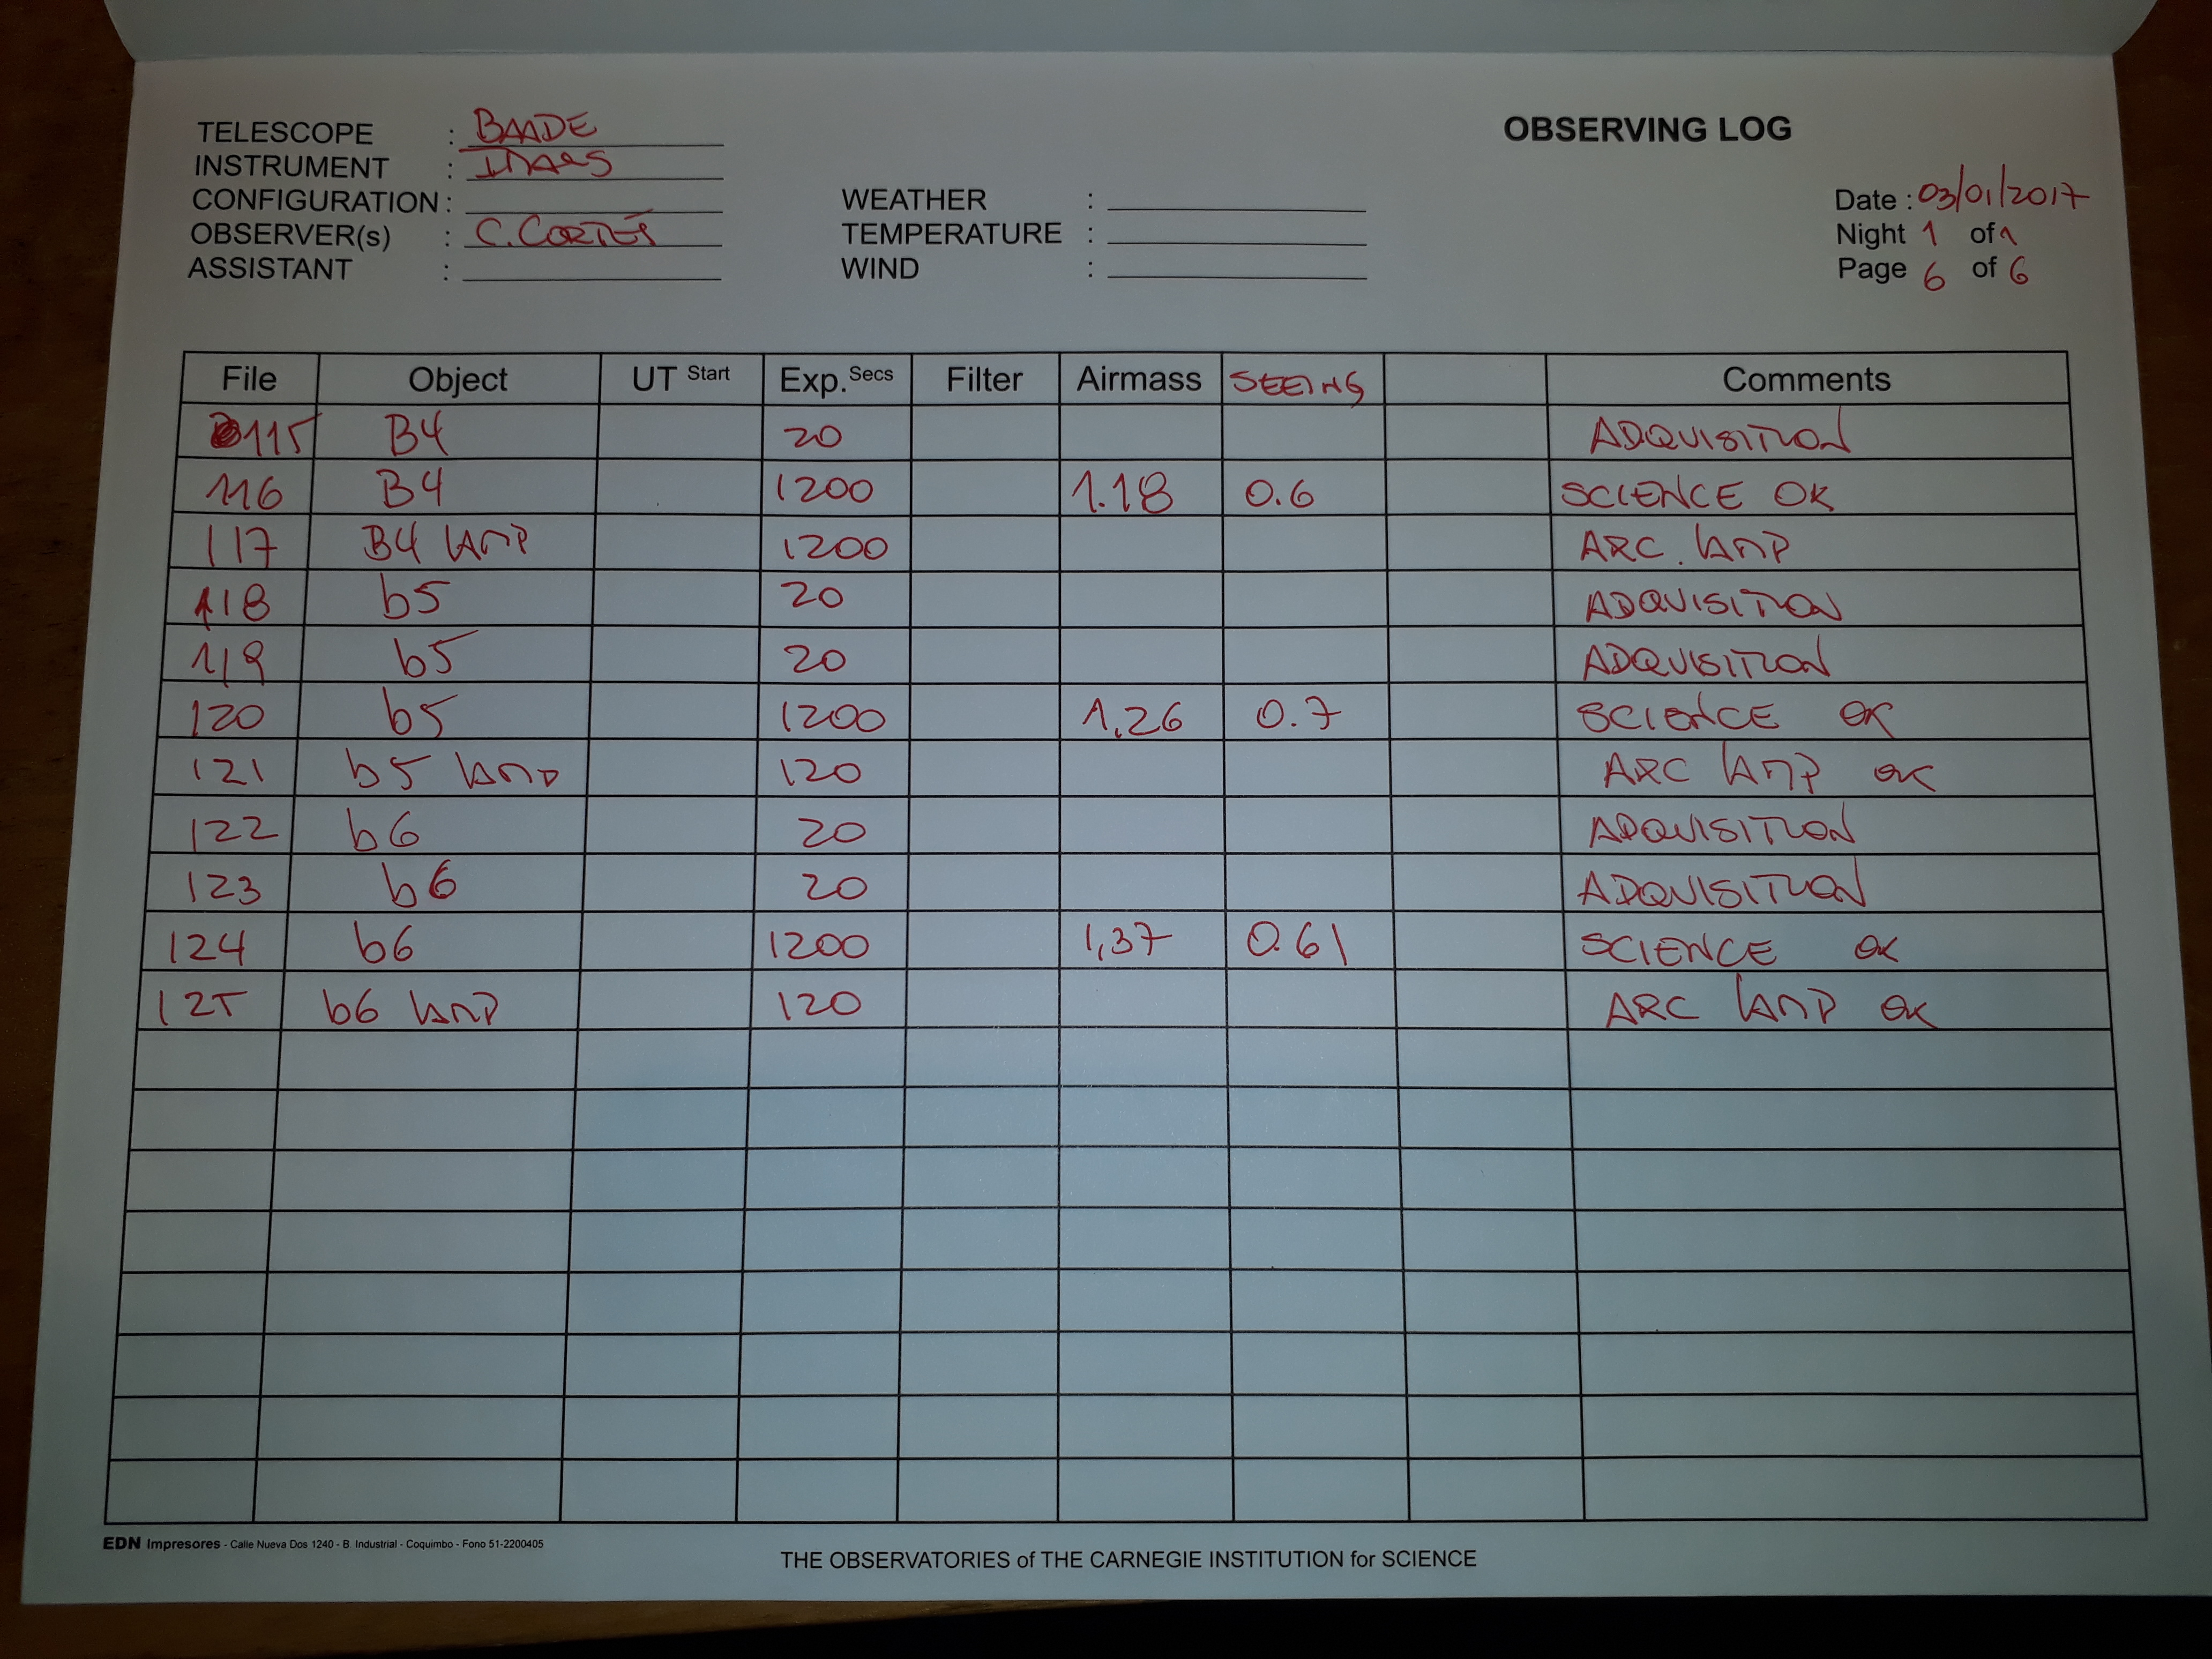 OBSERVING LOG
TELESCOPE : BAADE
INSTRUMENT : IMACS
CONFIGURATION :
OBSERVER(s) : C. CORTÉS
ASSISTANT :
WEATHER :
TEMPERATURE :
WIND :
Date : 03/01/2017
Night 1 of 1
Page 6 of 6
File Object UT Start Exp. Secs Filter Airmass SEEING Comments
115 B4 20 ADQUISITION
116 B4 1200 1.18 0.6 SCIENCE OK
117 B4 LAMP 1200 ARC. LAMP
118 b5 20 ADQUISITION
119 b5 20 ADQUISITION
120 b5 1200 1,26 0.7 SCIENCE OK
121 b5 LAMP 120 ARC LAMP OK
122 b6 20 ADQUISITION
123 b6 20 ADQUISITION
124 b6 1200 1,37 0.61 SCIENCE OK
125 b6 LAMP 120 ARC LAMP OK
EDN Impresores - Calle Nueva Dos 1240 - B. Industrial - Coquimbo - Fono 51-2200405
THE OBSERVATORIES of THE CARNEGIE INSTITUTION for SCIENCE